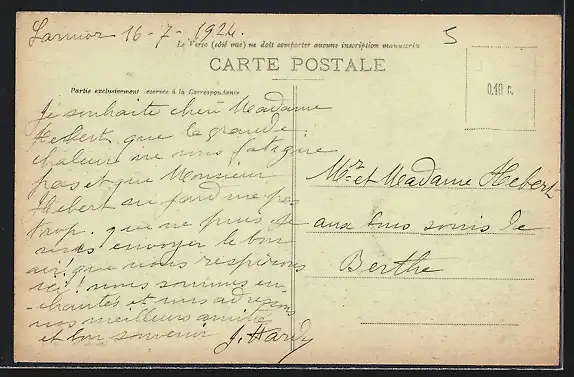 Larmor 16-7-1924.
5
Le Verso (côté vue) ne doit comporter aucune inscription manuscrite
CARTE POSTALE
Partie exclusivement réservée à la Correspondance
0.10 c.
Je souhaite chère Madame
Hébert que la grande
chaleur ne vous fatigue
pas et que Monsieur
Hébert au fond ne pas
trop. que ne puis-je
vous envoyer le bon
air! que nous respirons
ici! nous sommes en-
chantés et vous adressons
nos meilleurs amitiés
et bon souvenir J. Hardy
Mr et Madame Hebert
aux bons soins de
Berthe